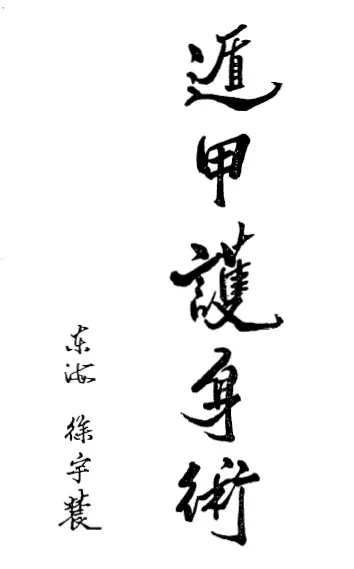 遁甲護身術
东海 徐宇辳